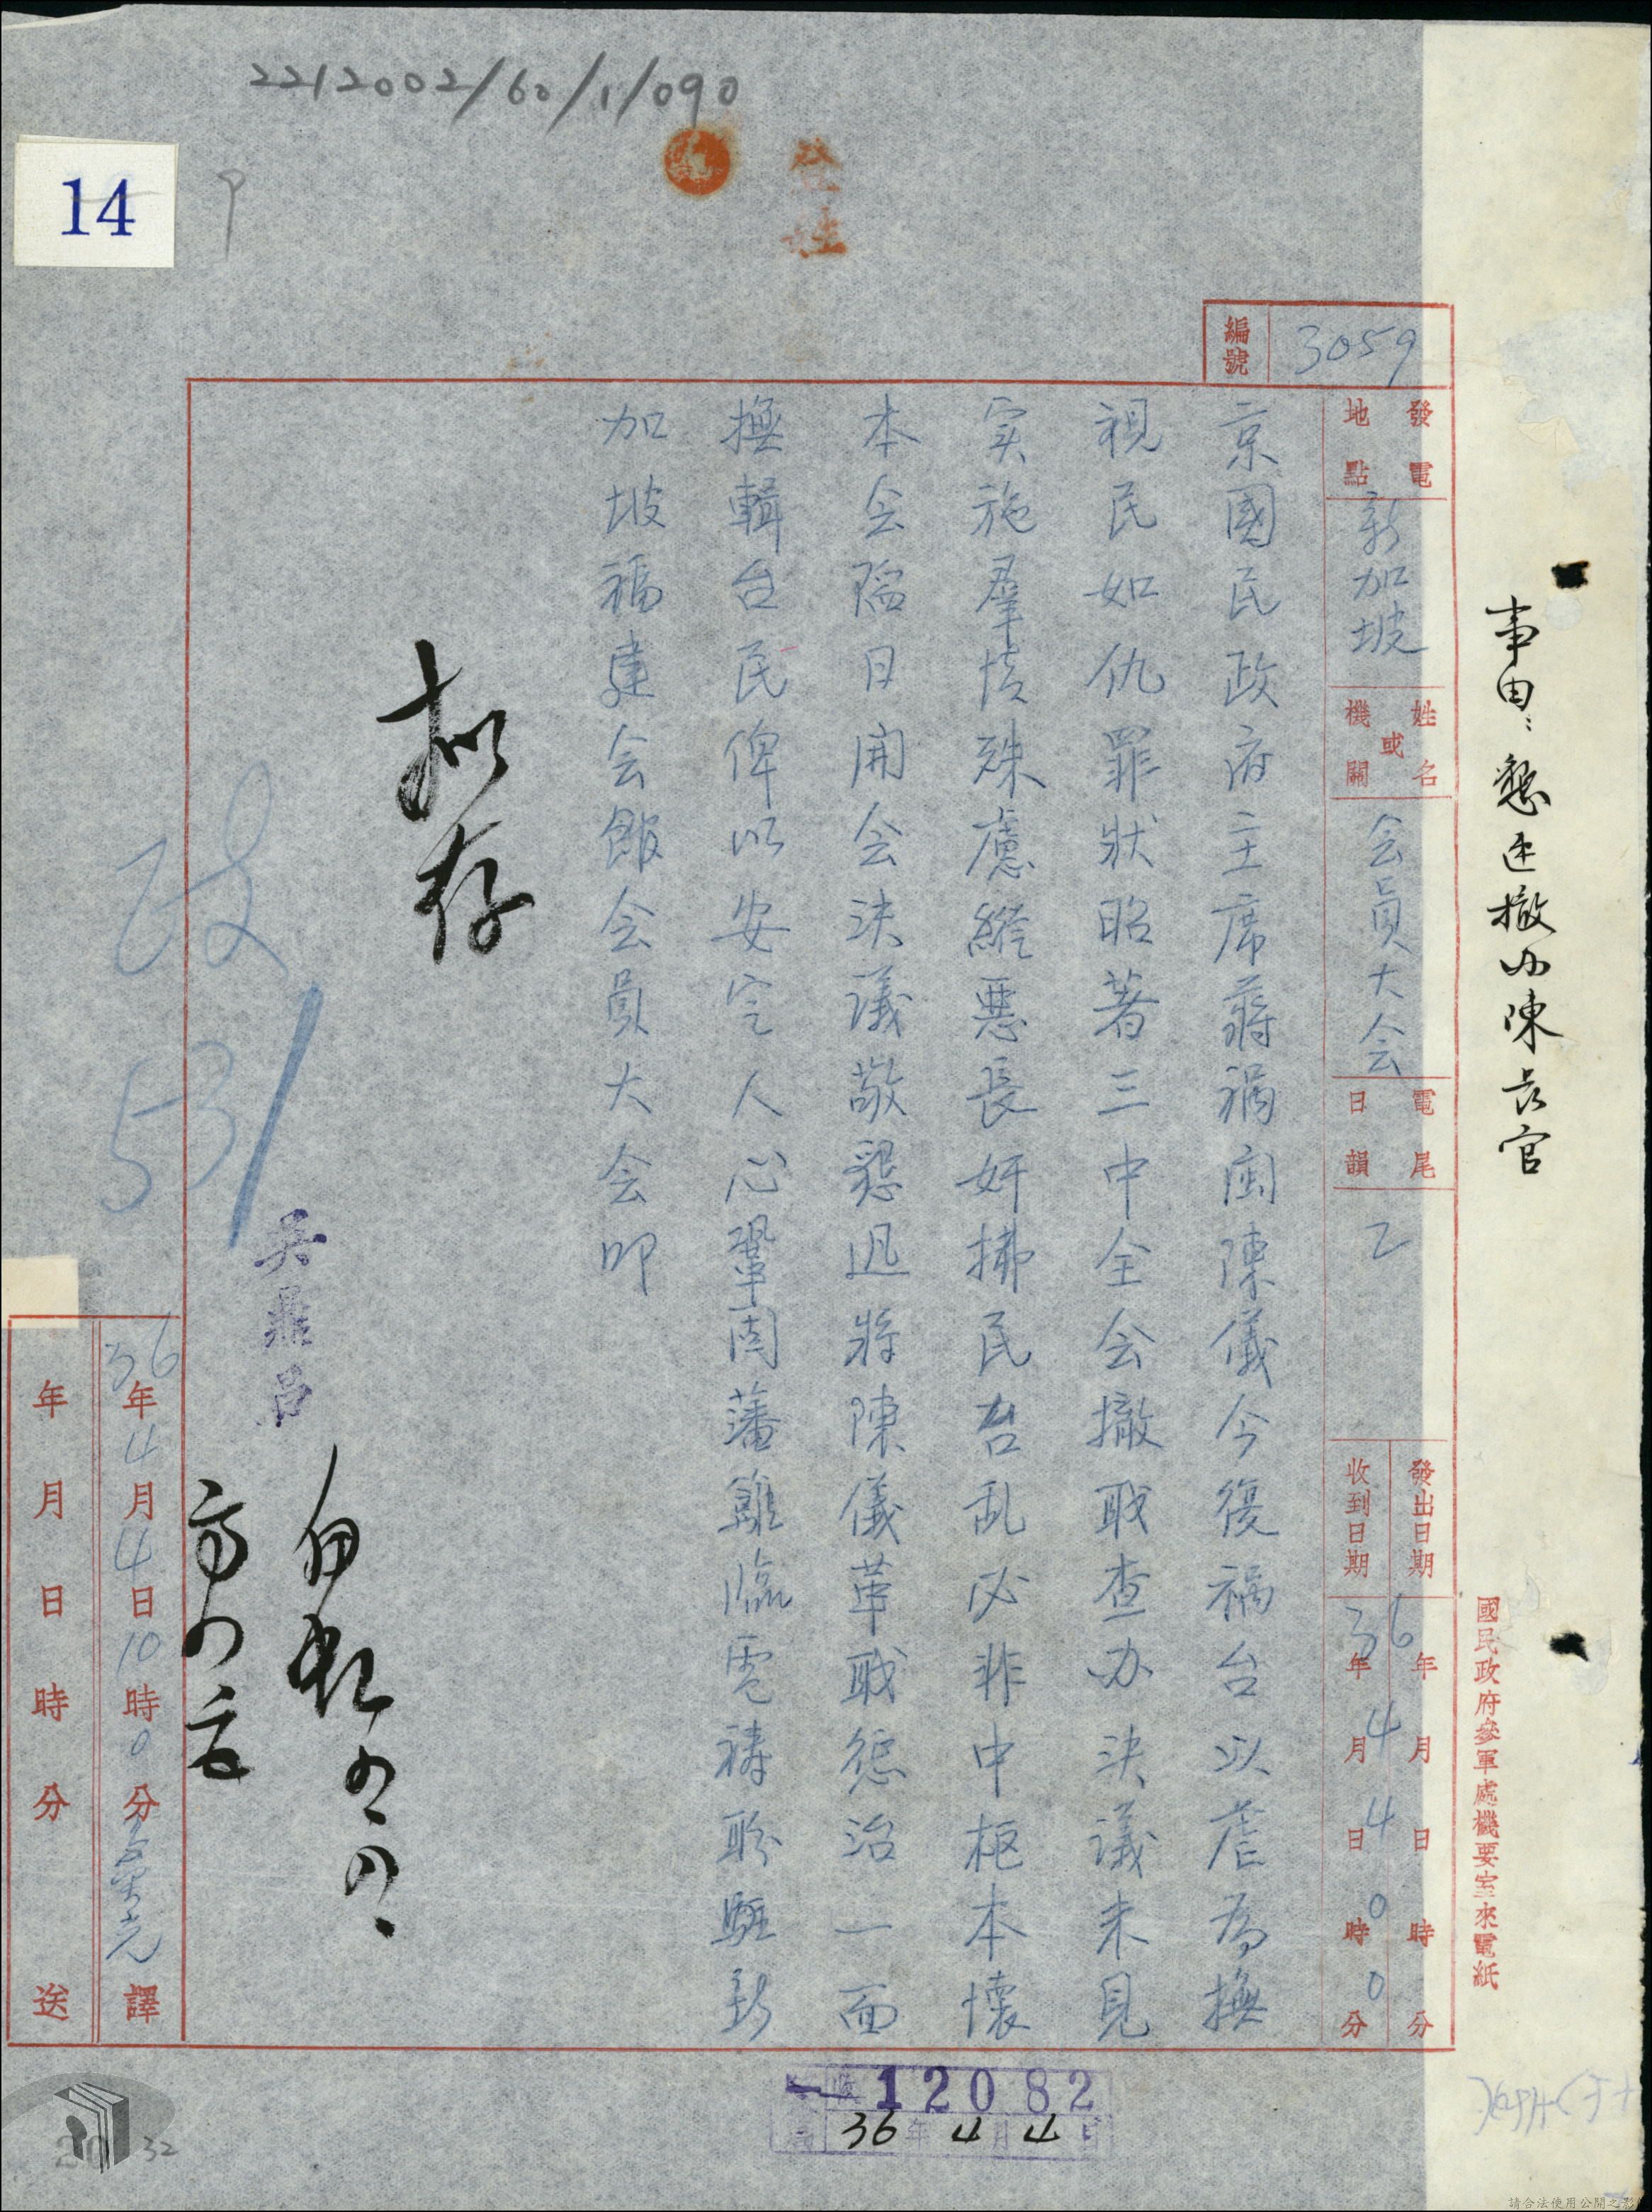 2212002/60/1/090
14
登註
事由：懇迅撤办陳長官
國民政府參軍處機要室來電紙
編號 3059
發電地點 新加坡
姓名或機關 会員大会
電尾日韻 乙
發出日期 年 月 日 時 分
收到日期 36年4月4日0時0分
京國民政府主席蔣禍閩陳儀今復禍台以虐為撫
視民如仇罪狀昭著三中全会撤职查办決議未見
实施羣情殊慮縱惡長奸拂民台乱必非中枢本懷
本会陷日開会決議敬懇迅將陳儀革职惩治一面
撫輯台民俾以安定人心鞏固藩籬臨電禱盼駐新
加坡福建会館会員大会叩
拟存
政
531
吳鼎昌
36年4月4日10時0分 譯
年 月 日 時 分 送
收 12082
36年4月4日
32
請合法使用公開之影